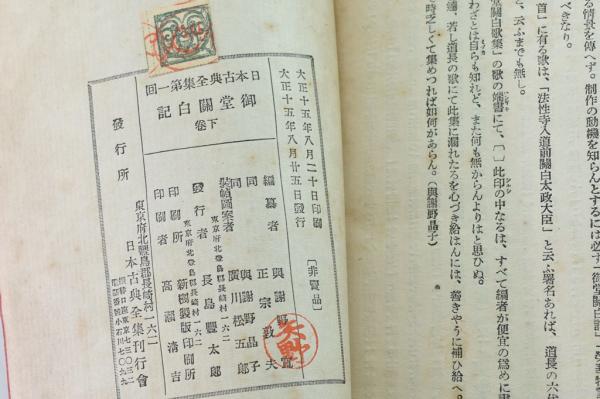 る情景を傳へず。制作の動機を知らんとするには必ず「御堂關白記」
べきなり。
首」に有る歌は、「法性寺入道前關白太政大臣」と云ふ署名あれば、道長の六代
、云ふまでも無し。
堂關白歌集」の歌の端書にて、〔〕此印の中なるは、すべて編者が便宜の爲めに
わざとは自らも知れど、また何も無からんよりはと思ひぬ。
若し道長の歌にて此集に漏れたるを心づき給はんには、善きやうに補ひ給へ。
時乏しくて集めつれば如何があらん。（與謝野晶子）
大正十五年八月二十日印刷
大正十五年八月廿五日發行
〔非賣品〕
日本古典全集第一回
御堂關白記
下卷
編纂者 與謝野寬
同 正宗敦夫
同 與謝野晶子
裝幀圖案者 廣川松五郎
東京府北豐島郡長崎村一六二
發行者 長島豐太郎
東京府北豐島郡長崎村一六二
印刷所 新樹製版印刷所
印刷者 高瀨清吉
發行所
東京府北豐島郡長崎村一六二
日本古典全集刊行會